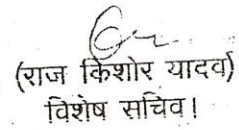 (राज किशोर यादव)
विशेष सचिव।